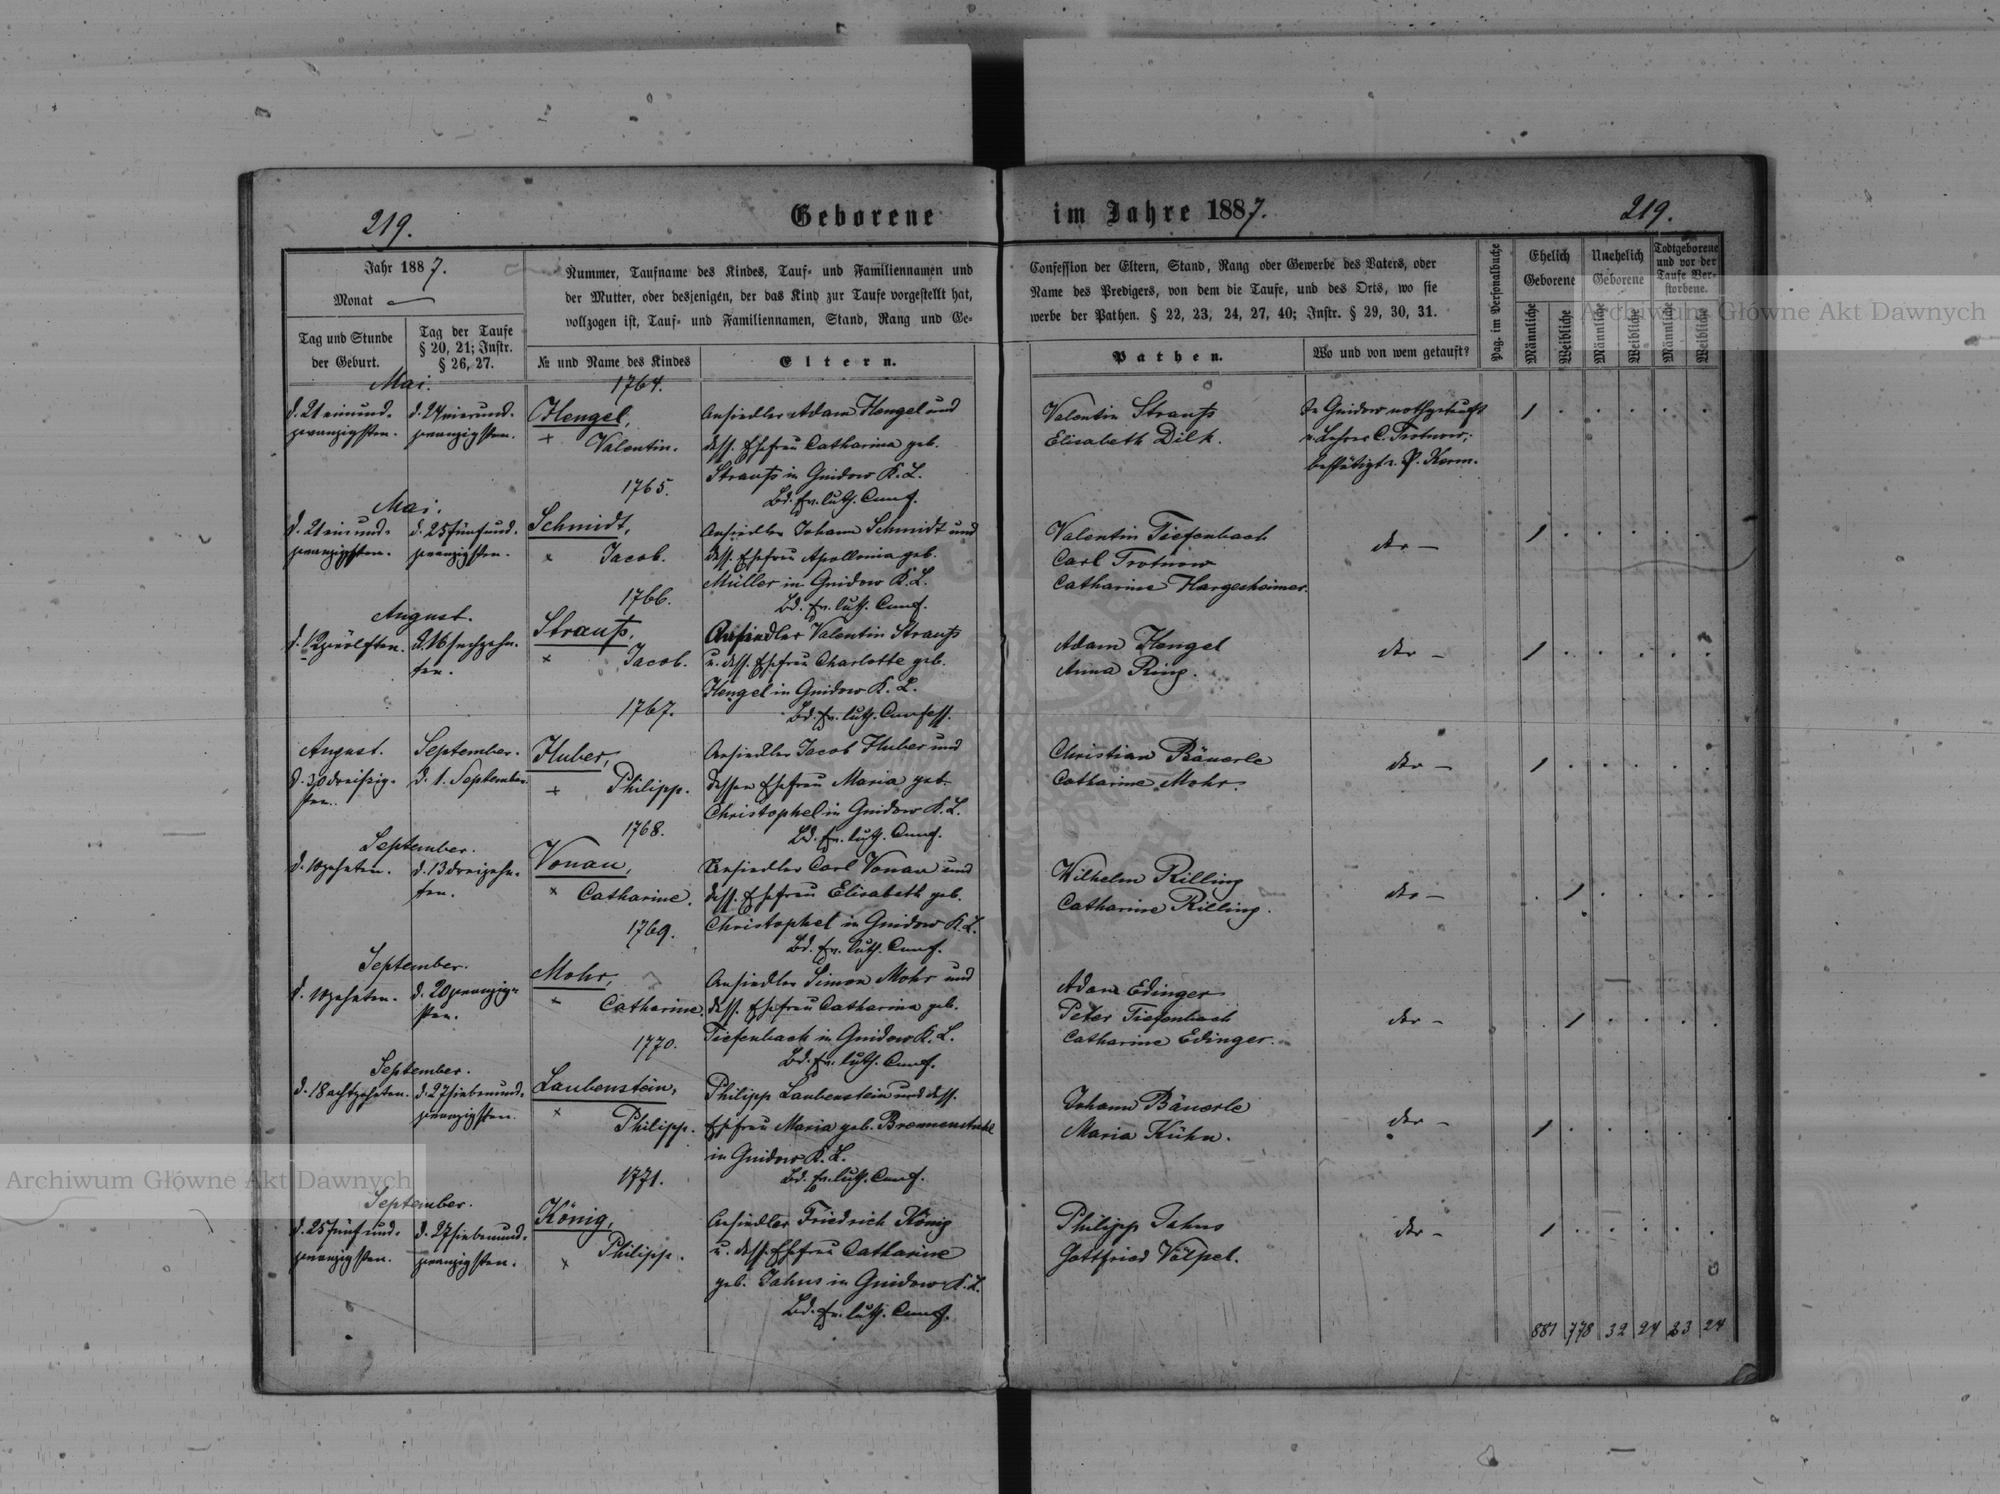 219.
Geborene
im Jahre 1887.
219.
Jahr 1887.
Monat
Tag und Stunde
der Geburt.
Tag der Taufe
§ 20, 21; Instr.
§ 26, 27.
Nummer, Taufname des Kindes, Tauf- und Familiennamen und
der Mutter, oder desjenigen, der das Kind zur Taufe vorgestellt hat,
vollzogen ist, Tauf- und Familiennamen, Stand, Rang und Ge-
№ und Name des Kindes
Eltern.
Confession der Eltern, Stand, Rang oder Gewerbe des Vaters, oder
Name des Predigers, von dem die Taufe, und des Orts, wo sie
werbe der Pathen. § 22, 23, 24, 27, 40; Instr. § 29, 30, 31.
Pathen.
Wo und von wem getauft?
Pag. im Personalbuche
Ehelich
Geborene
Unehelich
Geborene
Todtgeborene
und vor der
Taufe Ver-
storbene.
Männliche
Weibliche
Männliche
Weibliche
Männliche
Weibliche
Mai.
d. 21 einund-
zwanzigsten.
d. 24 vierund-
zwanzigsten.
1764.
Hengel,
+ Valentin.
Ansiedler Adam Hengel und
dess. Ehefrau Catharina geb.
Strauß in Gnidow K. L.
Bd. Ev. luth. Conf.
Valentin Strauß
Elisabeth Dilk.
In Gnidow nothgetauft
v. Lehrer C. Trotnow;
bestätigt v. P. Kerm.
1
Mai.
d. 21 einund-
zwanzigsten.
d. 25 fünfund-
zwanzigsten.
1765.
Schmidt,
× Jacob.
Ansiedler Johann Schmidt und
dess. Ehefrau Apollonia geb.
Müller in Gnidow K. L.
Bd. Ev. luth. Conf.
Valentin Tiefenbach
Carl Trotnow
Catharine Hargesheimer.
dto –
1
August.
d. 12 zwölften.
d. 16 sechzehn-
ten.
1766.
Strauß,
× Jacob.
Ansiedler Valentin Strauß
u. dess. Ehefrau Charlotte geb.
Hengel in Gnidow K. L.
Bd. Ev. luth. Confess.
Adam Hengel
Anna Ring.
dto –
1
August.
d. 30 dreißig-
sten.
September.
d. 1. September
1767.
Huber,
+ Philipp.
Ansiedler Jacob Huber und
dessen Ehefrau Maria geb.
Christophel in Gnidow K. L.
Bd. Ev. luth. Conf.
Christian Bäuerle
Catharine Mohr.
dto –
1
September.
d. 10 zehnten.
d. 13 dreizehn-
ten.
1768.
Vonau,
× Catharine.
Ansiedler Carl Vonau und
dess. Ehefrau Elisabeth geb.
Christophel in Gnidow K. L.
Bd. Ev. luth. Conf.
Wilhelm Rilling
Catharine Rilling.
dto –
1
September.
d. 10 zehnten.
d. 20 zwanzig-
sten.
1769.
Mohr,
× Catharine.
Ansiedler Simon Mohr und
dess. Ehefrau Catharina geb.
Tiefenbach in Gnidow K. L.
Bd. Ev. luth. Conf.
Adam Edinger
Peter Tiefenbach
Catharine Edinger.
dto –
1
September.
d. 18 achtzehnten.
d. 27 siebenund-
zwanzigsten.
1770.
Laubenstein,
× Philipp.
Philipp Laubenstein und dess.
Ehefrau Maria geb. Bronnenstuhl
in Gnidow K. L.
Bd. Ev. luth. Conf.
Johann Bäuerle
Maria Kühn.
dto –
1
September.
d. 25 fünfund-
zwanzigsten.
d. 27 siebenund-
zwanzigsten.
1771.
König,
× Philipp.
Ansiedler Friedrich König
u. dess. Ehefrau Catharine
geb. Jahns in Gnidow K. L.
Bd. Ev. luth. Conf.
Philipp Jahns
Gottfried Völpel.
dto –
1
881 778 32 24 23 24
Archiwum Główne Akt Dawnych
Archiwum Główne Akt Dawnych